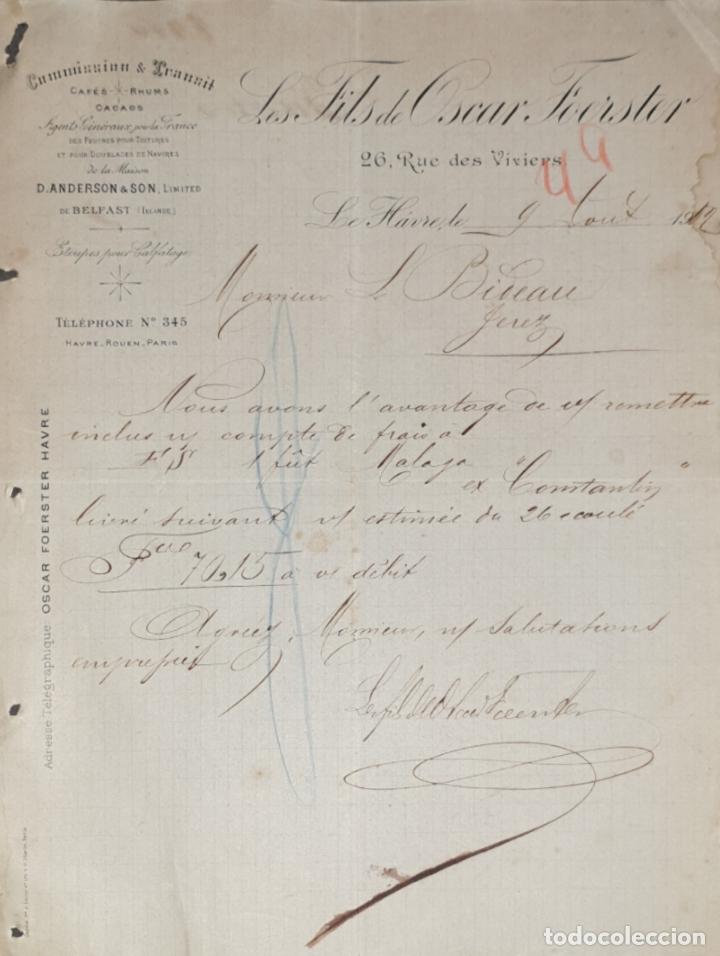 Commission & Transit
CAFÉS - RHUMS
CACAOS
Agents Généraux pour la France
DES FEUTRES POUR TOITURES
ET POUR DOUBLAGES DE NAVIRES
de la Maison
D. ANDERSON & SON, LIMITED
DE BELFAST (IRLANDE)
Etoupes pour Calfatage
TÉLÉPHONE Nº 345
HAVRE_ROUEN_PARIS
Adresse Télégraphique OSCAR FOERSTER HAVRE
Les Fils de Oscar Foerster
26, Rue des Viviers
Le Hâvre, le 9 Aout
Monsieur L Bibeau
Jerez
Nous avons l'avantage de v/ remettre
inclus n/ compte de frais à
1 fût Malaga
ex "Constantin"
livré suivant v/ estimée du 26 écoulé
Fcs 70,15 à vs débit
Agréez, Monsieur, n/ salutations
empressées
Les fils de Oscar Foerster
todocoleccion